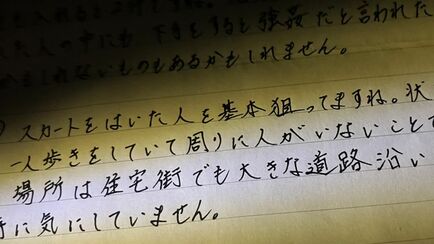 た人の中にも 下手をすると強姦だと言われた
しれないものもあるかもしれません。
) スカートをはいた人を基本狙ってますね。状
一人歩きをしていて周りに人がいないことで
場所は住宅街でも大きな道路沿い
に気にしていません。